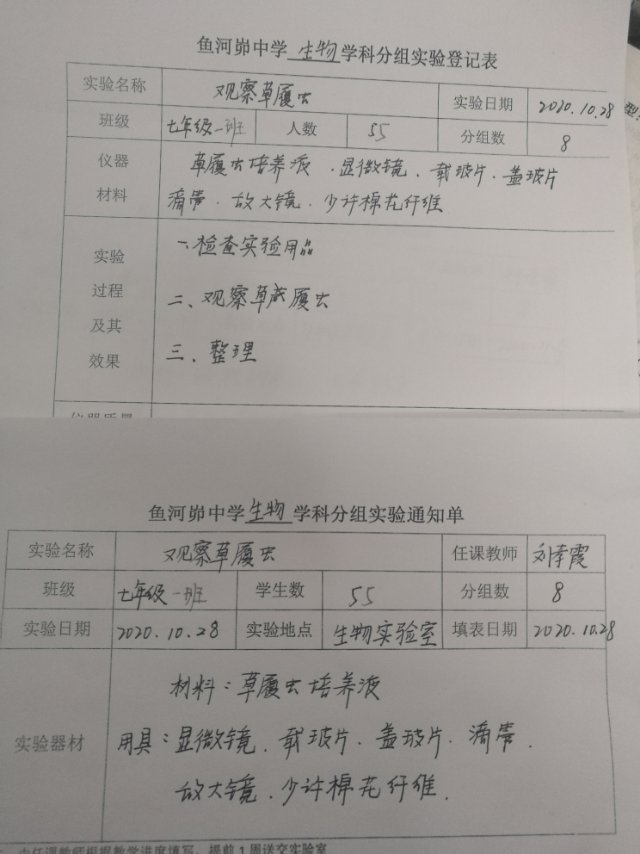 鱼河峁中学 生物 学科分组实验登记表
实验名称 观察草履虫 实验日期 2020.10.28
班级 七年级一班 人数 55 分组数 8
仪器 草履虫培养液、显微镜、载玻片、盖玻片
材料 滴管、放大镜、少许棉花纤维
实验 一、检查实验用品
过程 二、观察草履虫
及其
效果 三、整理
仪器质量
鱼河峁中学 生物 学科分组实验通知单
实验名称 观察草履虫 任课教师
班级 七年级一班 学生数 55 分组数 8
实验日期 2020.10.28 实验地点 生物实验室 填表日期 2020.10.28
材料：草履虫培养液
实验器材 用具：显微镜、载玻片、盖玻片、滴管、
放大镜、少许棉花纤维.
由任课教师根据教学进度填写，提前1周送交实验室